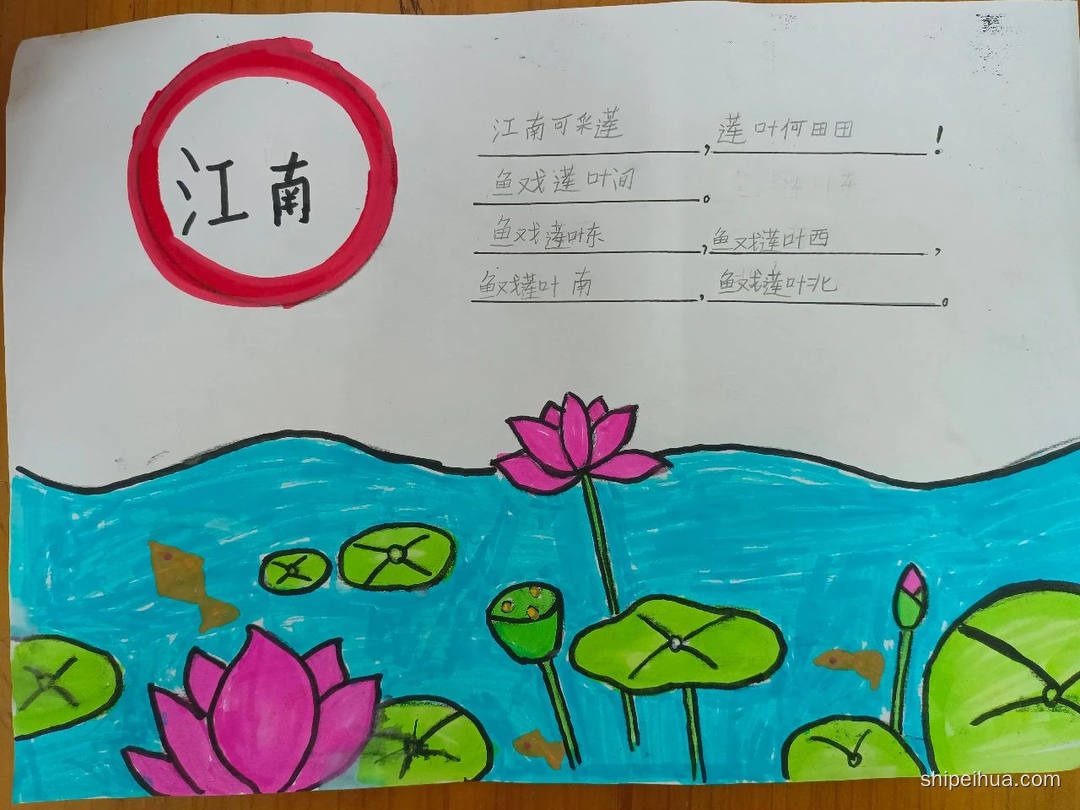 江南
江南可采莲，莲叶何田田！
鱼戏莲叶间。
鱼戏莲叶东，鱼戏莲叶西，
鱼戏莲叶南，鱼戏莲叶北。
shipeihua.com